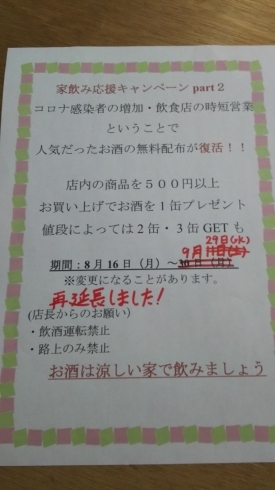 家飲み応援キャンペーン part 2
コロナ感染者の増加・飲食店の時短営業
ということで
人気だったお酒の無料配布が復活！！
店内の商品を５００円以上
お買い上げでお酒を１缶プレゼント
値段によっては２缶・３缶 GET も
29日(水)
9月
期間：8 月 16 日（月）～30 日（月）
※変更になることがあります。
再延長しました!
(店長からのお願い)
・飲酒運転禁止
・路上のみ禁止
お酒は涼しい家で飲みましょう